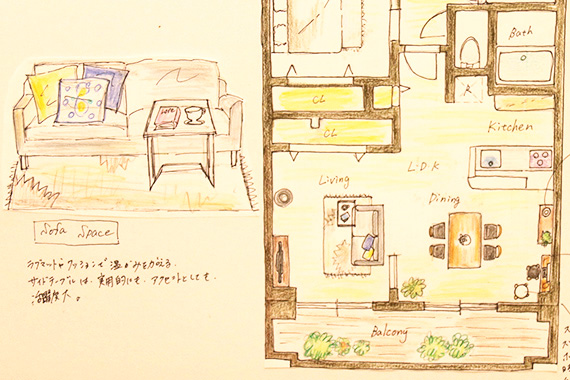 Sofa Space
ラグマットやクッションで温かみを加える。
サイドテーブルは、実用的にも、アクセントとしても、
活躍度大。
Bath
CL
R
CL
Kitchen
Living
L・D・K
Dining
Balcony